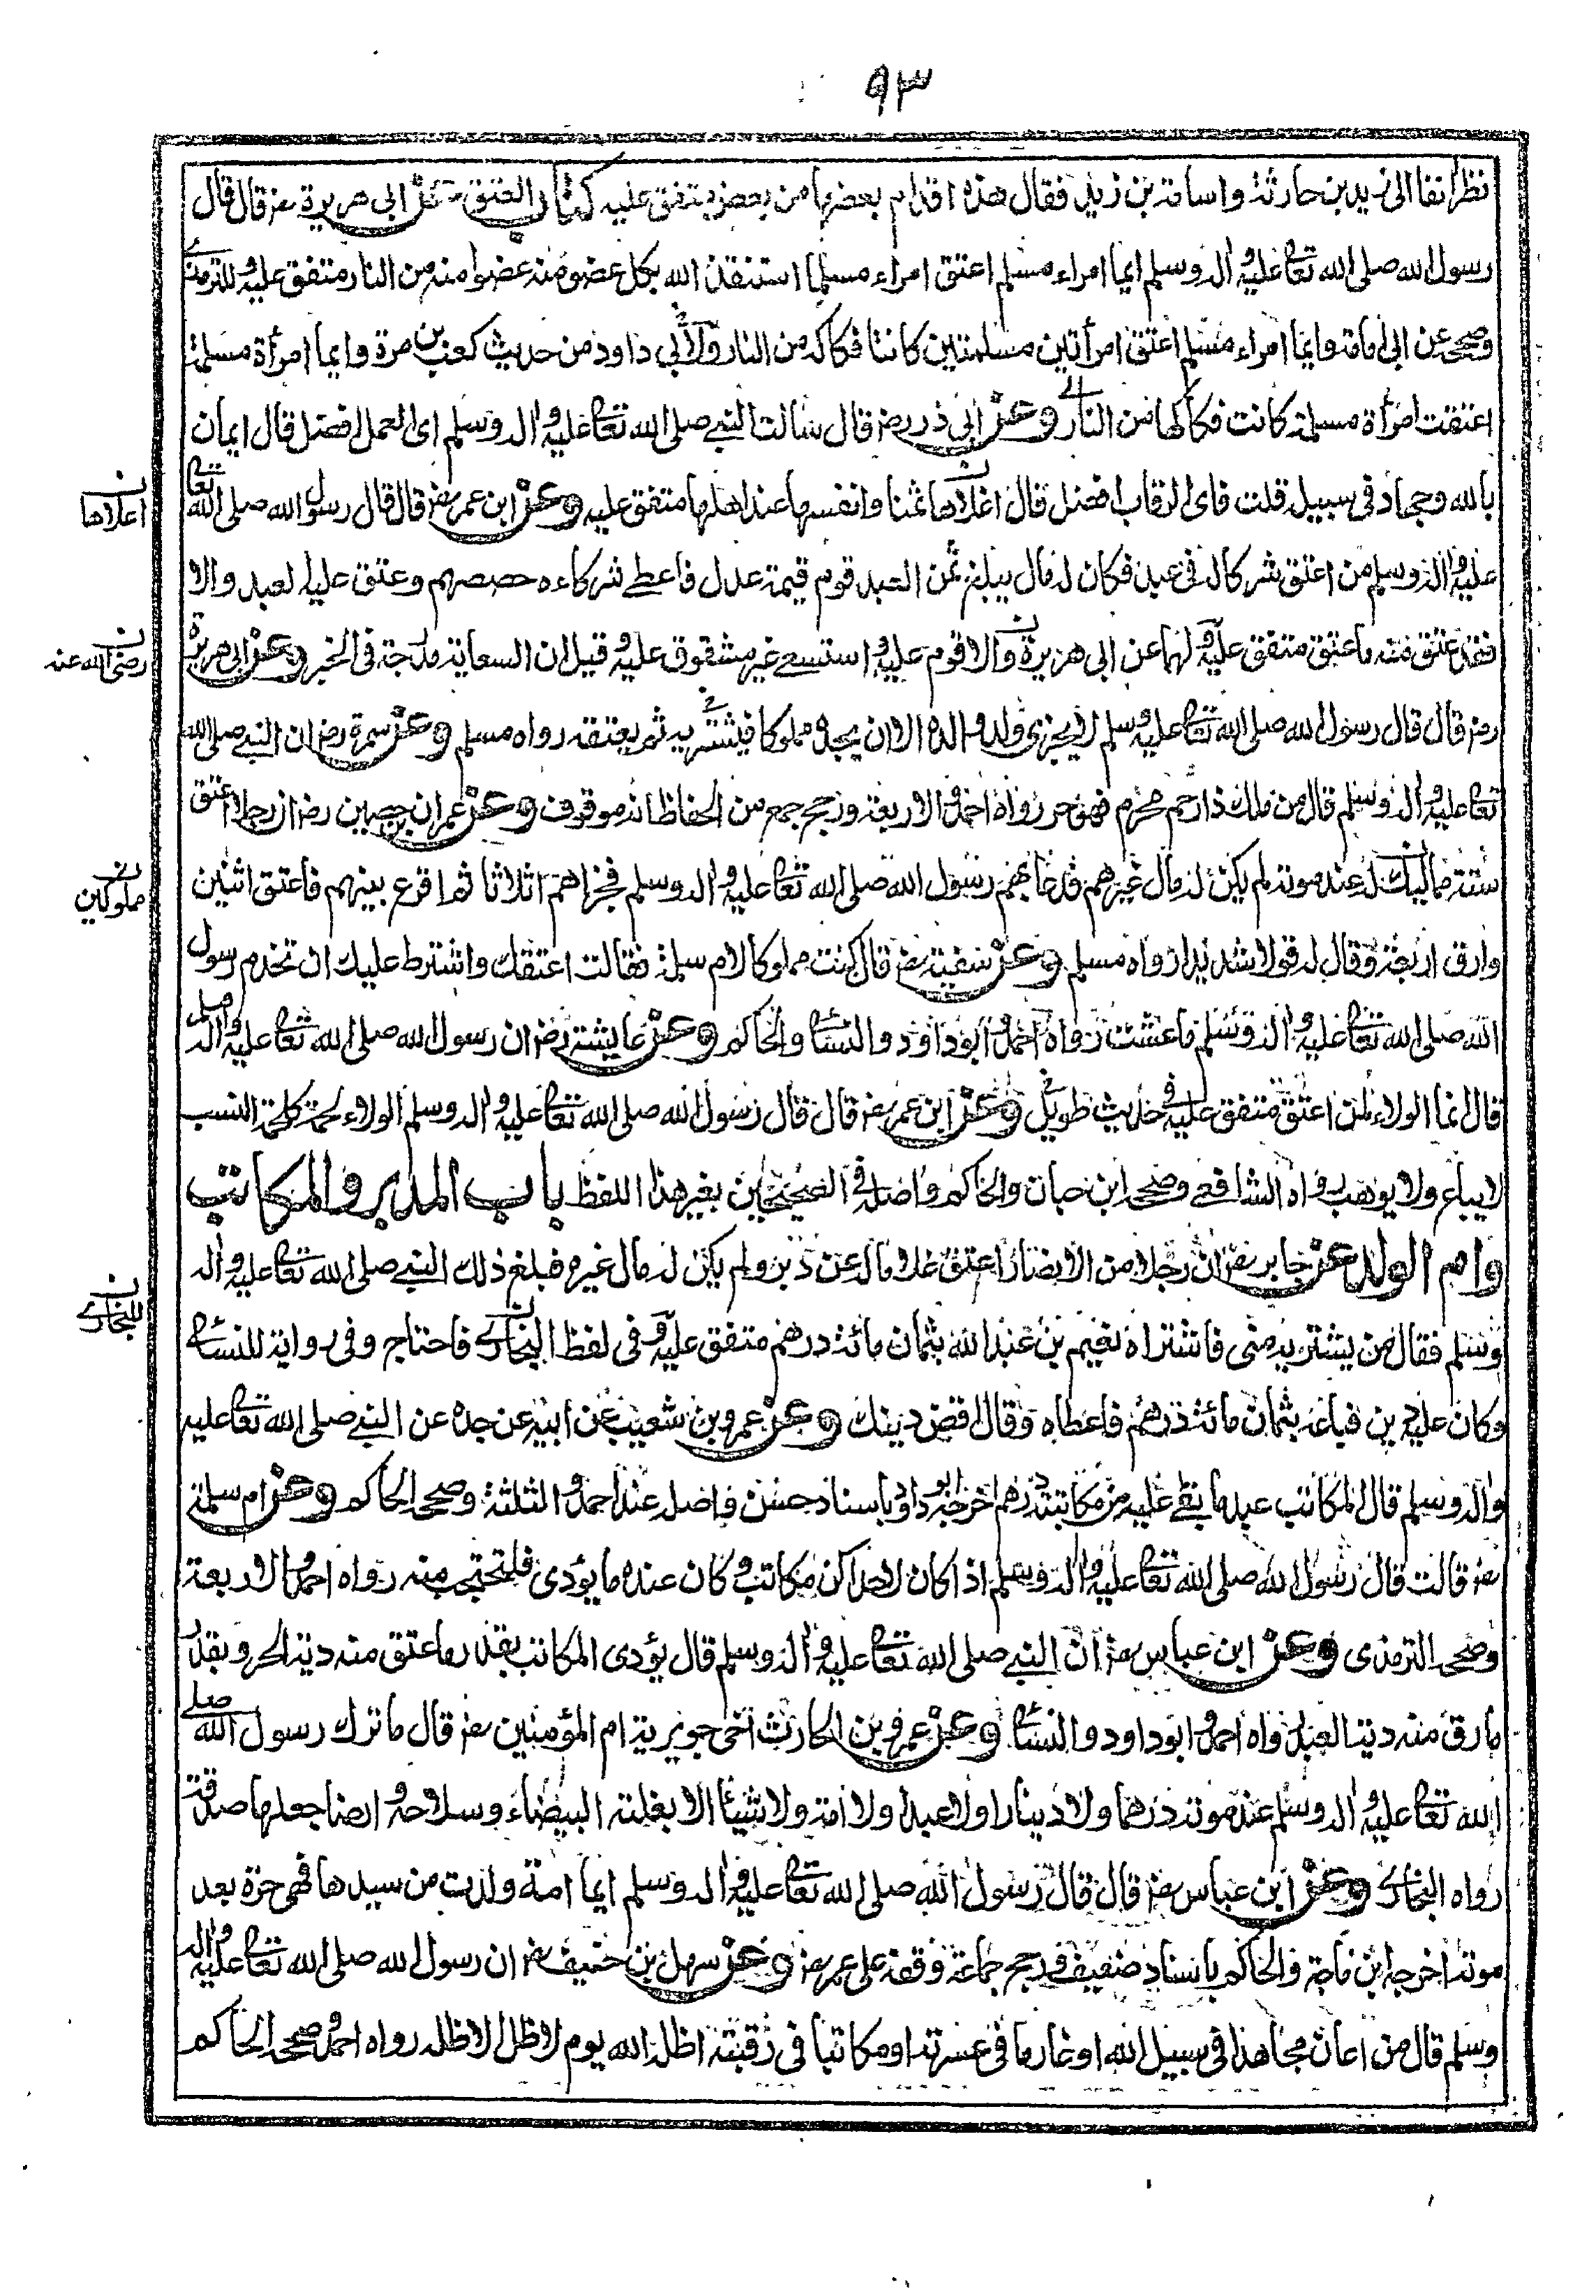 ٩٣
نظر انفا الى زيد بن حارثة واسامة بن زيد فقال هذه اقدام بعضها من بعض متفق عليه كتاب العتق عن ابي هريرة رض قال قال
رسول الله صلى الله تعا عليه واله وسلم ايما امراء مسلم اعتق امراء مسلما استنقذ الله بكل عضو منه عضوا منه من النار متفق عليه وللترمذي
وصححه عن ابي امامة وايما امراء مسلم اعتق امرأتين مسلمتين كانتا فكاكه من النار ولابي داود من حديث كعب بن مرة وايما امرأة مسلمة
اعتقت امرأة مسلمة كانت فكاكها من النار وعن ابي ذر رض قال سالت النبي صلى الله تعا عليه واله وسلم اى العمل افضل قال ايمان
بالله وجهاد في سبيله قلت فاى الرقاب افضل قال اغلاها ثمنا وانفسها عند اهلها متفق عليه وعن ابن عمر رض قال قال رسول الله صلى الله تعا
اعلاها
عليه واله وسلم من اعتق شركا له في عبد فكان له مال يبلغ ثمن العبد قوم قيمة عدل فاعطى شركاءه حصصهم وعتق عليه العبد والا
فقد عتق منه ما عتق متفق عليه ولهما عن ابي هريرة والا قوم عليه واستسعى غير مشقوق عليه وقيل ان السعاية مدرجة في الخبر وعن ابي هريرة
رضى الله عنه
رض قال قال رسول الله صلى الله تعا عليه وسلم لا يجزى ولد والده الا ان يجده مملوكا فيشتريه ثم يعتقه رواه مسلم وعن سمرة رض ان النبي صلى الله
تعا عليه واله وسلم قال من ملك ذا رحم محرم فهو حر رواه احمد والاربعة ورجح جمع من الحفاظ انه موقوف وعن عمران بن حصين رض ان رجلا اعتق
ستة مماليك له عند موته لم يكن له مال غيرهم فدعا بهم رسول الله صلى الله تعا عليه واله وسلم فجزاهم اثلاثا ثم اقرع بينهم فاعتق اثنين
مملوكين
وارق اربعة وقال له قولا شديدا رواه مسلم وعن سفينة رض قال كنت مملوكا لام سلمة فقالت اعتقك واشترط عليك ان تخدم رسول
الله صلى الله تعا عليه واله وسلم ما عشت رواه احمد وابوداود والنسائ والحاكم وعن عايشة رض ان رسول الله صلى الله تعا عليه واله وسلم
قال انما الولاء لمن اعتق متفق عليه في حديث طويل وعن ابن عمر رض قال قال رسول الله صلى الله تعا عليه واله وسلم الولاء لحمة كلحمة النسب
لا يباع ولا يوهب رواه الشافعي وصححه ابن حبان والحاكم واصله في الصحيحين بغير هذا اللفظ باب المدبر والمكاتب
وام الولد عن جابر رض ان رجلا من الانصار اعتق غلاما له عن دبر ولم يكن له مال غيره فبلغ ذلك النبي صلى الله تعا عليه واله
وسلم فقال من يشتريه منى فاشتراه نعيم بن عبد الله بثمان مائة درهم متفق عليه وفي لفظ البخاري فاحتاج وفي رواية للنسائ
للبخاري
وكان عليه دين فباعه بثمان مائة درهم فاعطاه وقال اقض دينك وعن عمرو بن شعيب عن ابيه عن جده عن النبي صلى الله تعا عليه
واله وسلم قال المكاتب عبد ما بقي عليه من مكاتبته درهم اخرجه ابو داود باسناد حسن واصله عند احمد والثلثة وصححه الحاكم وعن ام سلمة
رض قالت قال رسول الله صلى الله تعا عليه واله وسلم اذا كان لاحداكن مكاتب وكان عنده ما يؤدى فلتحتجب منه رواه احمد والاربعة
وصححه الترمذي وعن ابن عباس رض ان النبي صلى الله تعا عليه واله وسلم قال يؤدى المكاتب بقدر ما عتق منه دية الحر وبقدر
ما رق منه دية العبد رواه احمد وابوداود والنسائ وعن عمرو بن الحارث اخى جويرية ام المؤمنين رض قال ما ترك رسول الله صلى
الله تعا عليه واله وسلم عند موته درهما ولا دينارا ولا عبدا ولا امة ولا شيئا الا بغلته البيضاء وسلاحه وارضا جعلها صدقة
رواه البخاري وعن ابن عباس رض قال قال رسول الله صلى الله تعا عليه واله وسلم ايما امة ولدت من سيدها فهى حرة بعد
موته اخرجه ابن ماجة والحاكم باسناد ضعيف ورجح جماعة وقفه على عمر رض وعن سهل بن حنيف رض ان رسول الله صلى الله تعا عليه واله
وسلم قال من اعان مجاهدا في سبيل الله او غارما في عسرته او مكاتبا في رقبته اظله الله يوم لا ظل الا ظله رواه احمد وصححه الحاكم